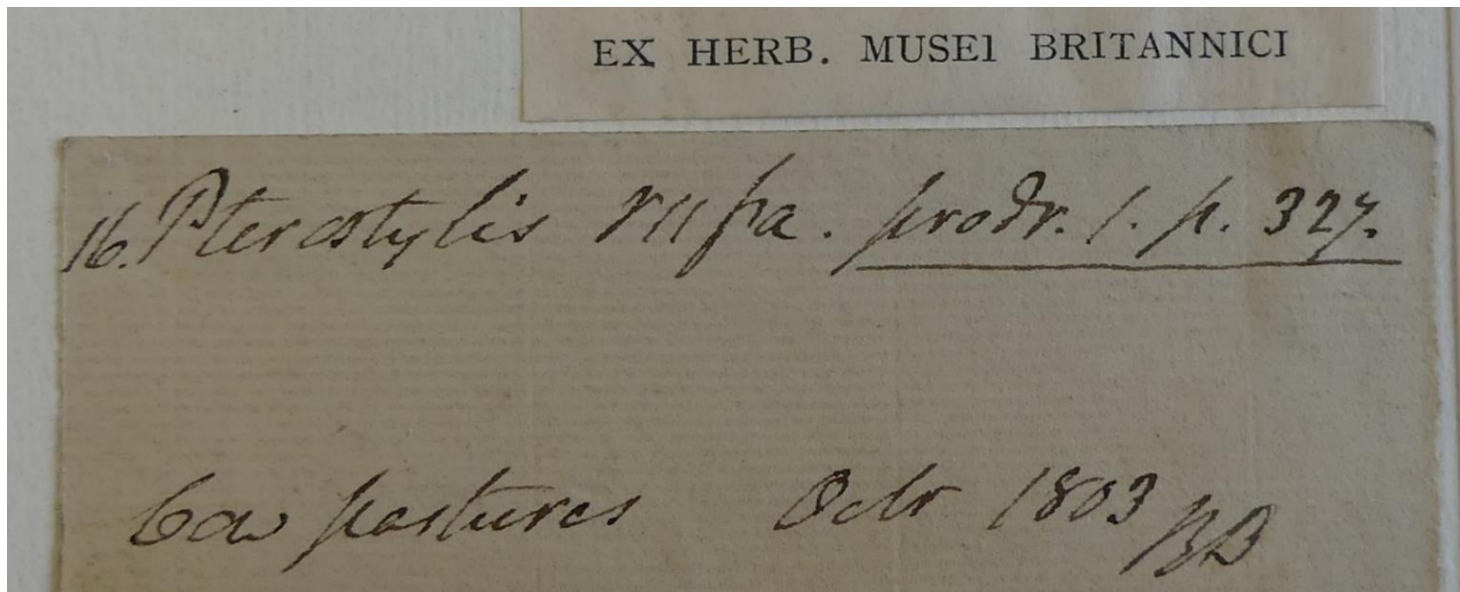 EX HERB. MUSEI BRITANNICI
16. Pterostylis rufa. prodr. 1. p. 327.
Cow pastures Octr 1803 RB